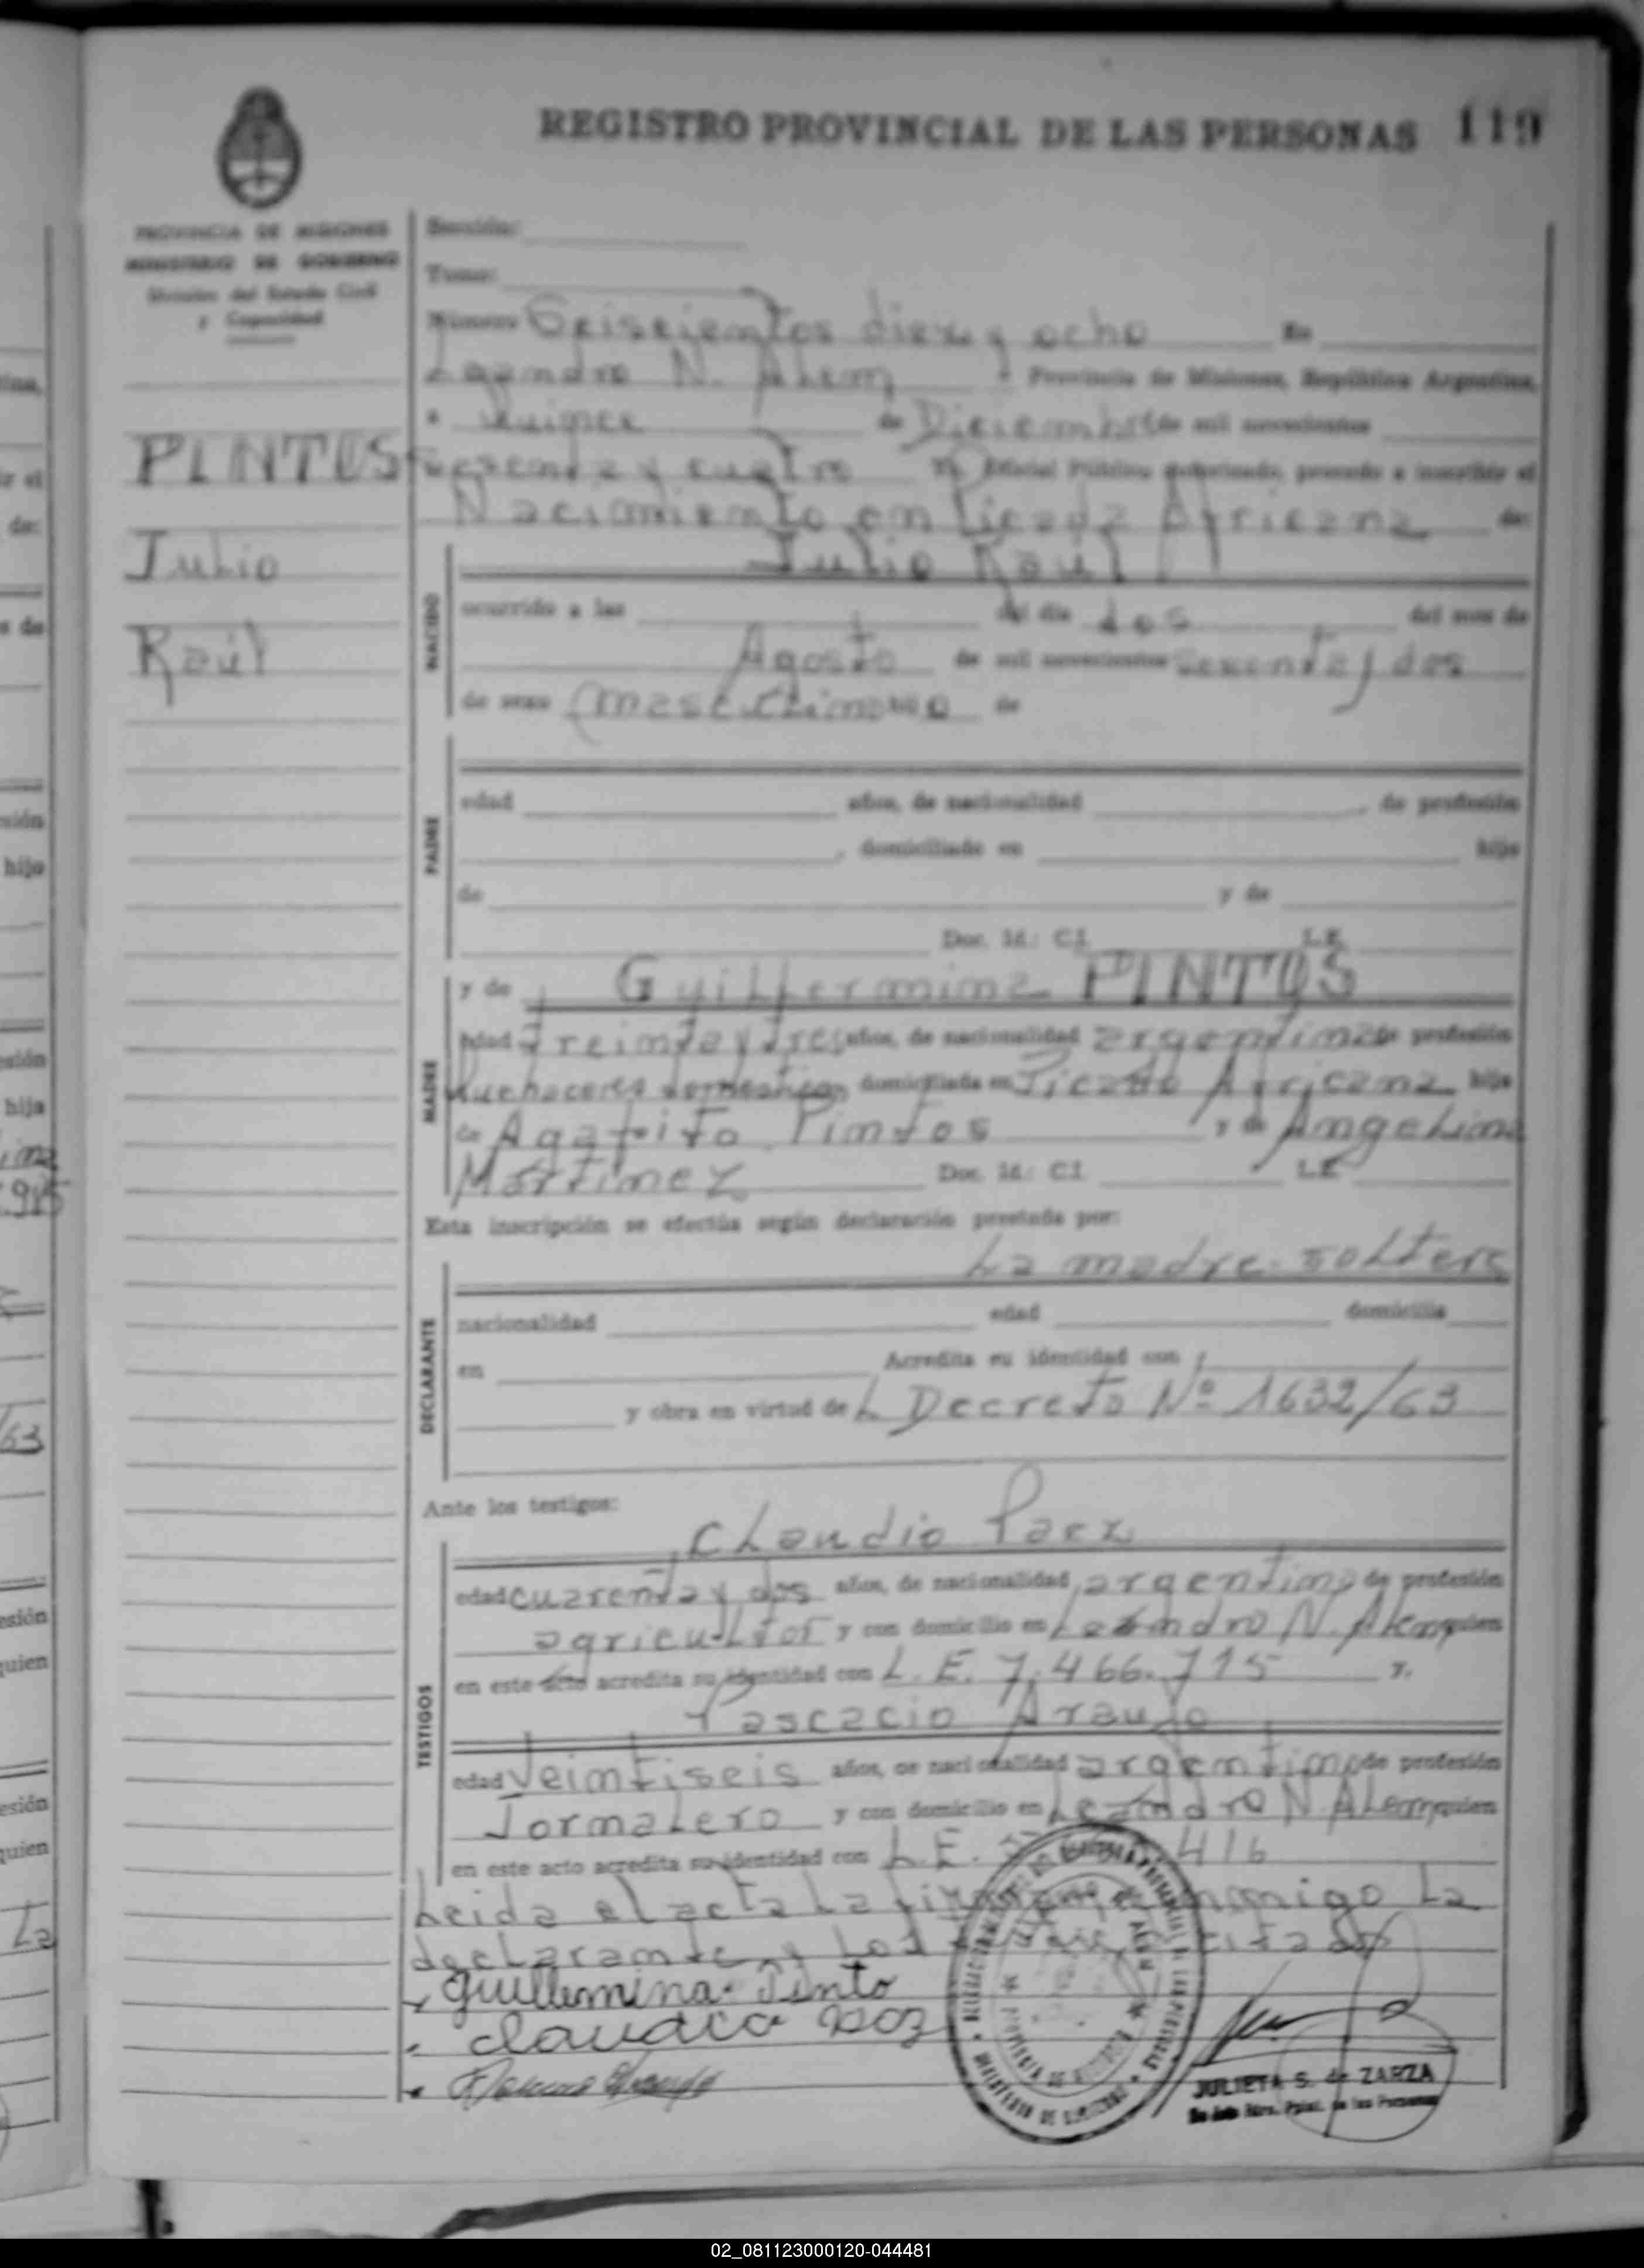 REGISTRO PROVINCIAL DE LAS PERSONAS 119
PROVINCIA DE MISIONES
MINISTERIO DE GOBIERNO
Division del Estado Civil
y Capacidad
Sección:
Tomo:
Número Seiscientos diez y ocho En
Leandro N. Alem Provincia de Misiones, República Argentina,
a Quince de Diciembre de mil novecientos
PINTOS sesenta y cuatro Yo Oficial Público autorizado, procedo a inscribir el
Nacimiento en Picada Africana de:
Julio
Raúl
NACIDO
Julio Raúl
ocurrido a las del día dos del mes de
Agosto de mil novecientos sesenta y dos
de sexo masculino de
PADRE
edad años, de nacionalidad , de profesión
, domiciliado en hijo
de y de
Doc. Id.: C.I. L.E.
MADRE
y de Guillermina PINTOS
edad treinta y tres años, de nacionalidad argentina de profesión
quehaceres domesticos domiciliada en Picada Africana hija
de Agapito Pintos y de Angelina
Martinez Doc. Id.: C.I. L.E.
Esta inscripción se efectúa según declaración prestada por:
La madre soltera
DECLARANTE
nacionalidad edad domicilio
en Acredita su identidad con
y obra en virtud del Decreto Nº 1632/63
Ante los testigos:
Claudio Paez
TESTIGOS
edad cuarenta y dos años, de nacionalidad argentino de profesión
agricultor y con domicilio en Leandro N. Alem quien
en este acto acredita su identidad con L.E. 7.466.715 y.
Pascacio Araujo
edad Veintiseis años, de nacionalidad argentino de profesión
Jornalero y con domicilio en Leandro N. Alem quien
en este acto acredita su identidad con L.E. 416
Leida el acta la firman conmigo la
declarante y los citados
guillermina Pinto
claudio
JULIETA S. de ZARZA
02_081123000120-044481